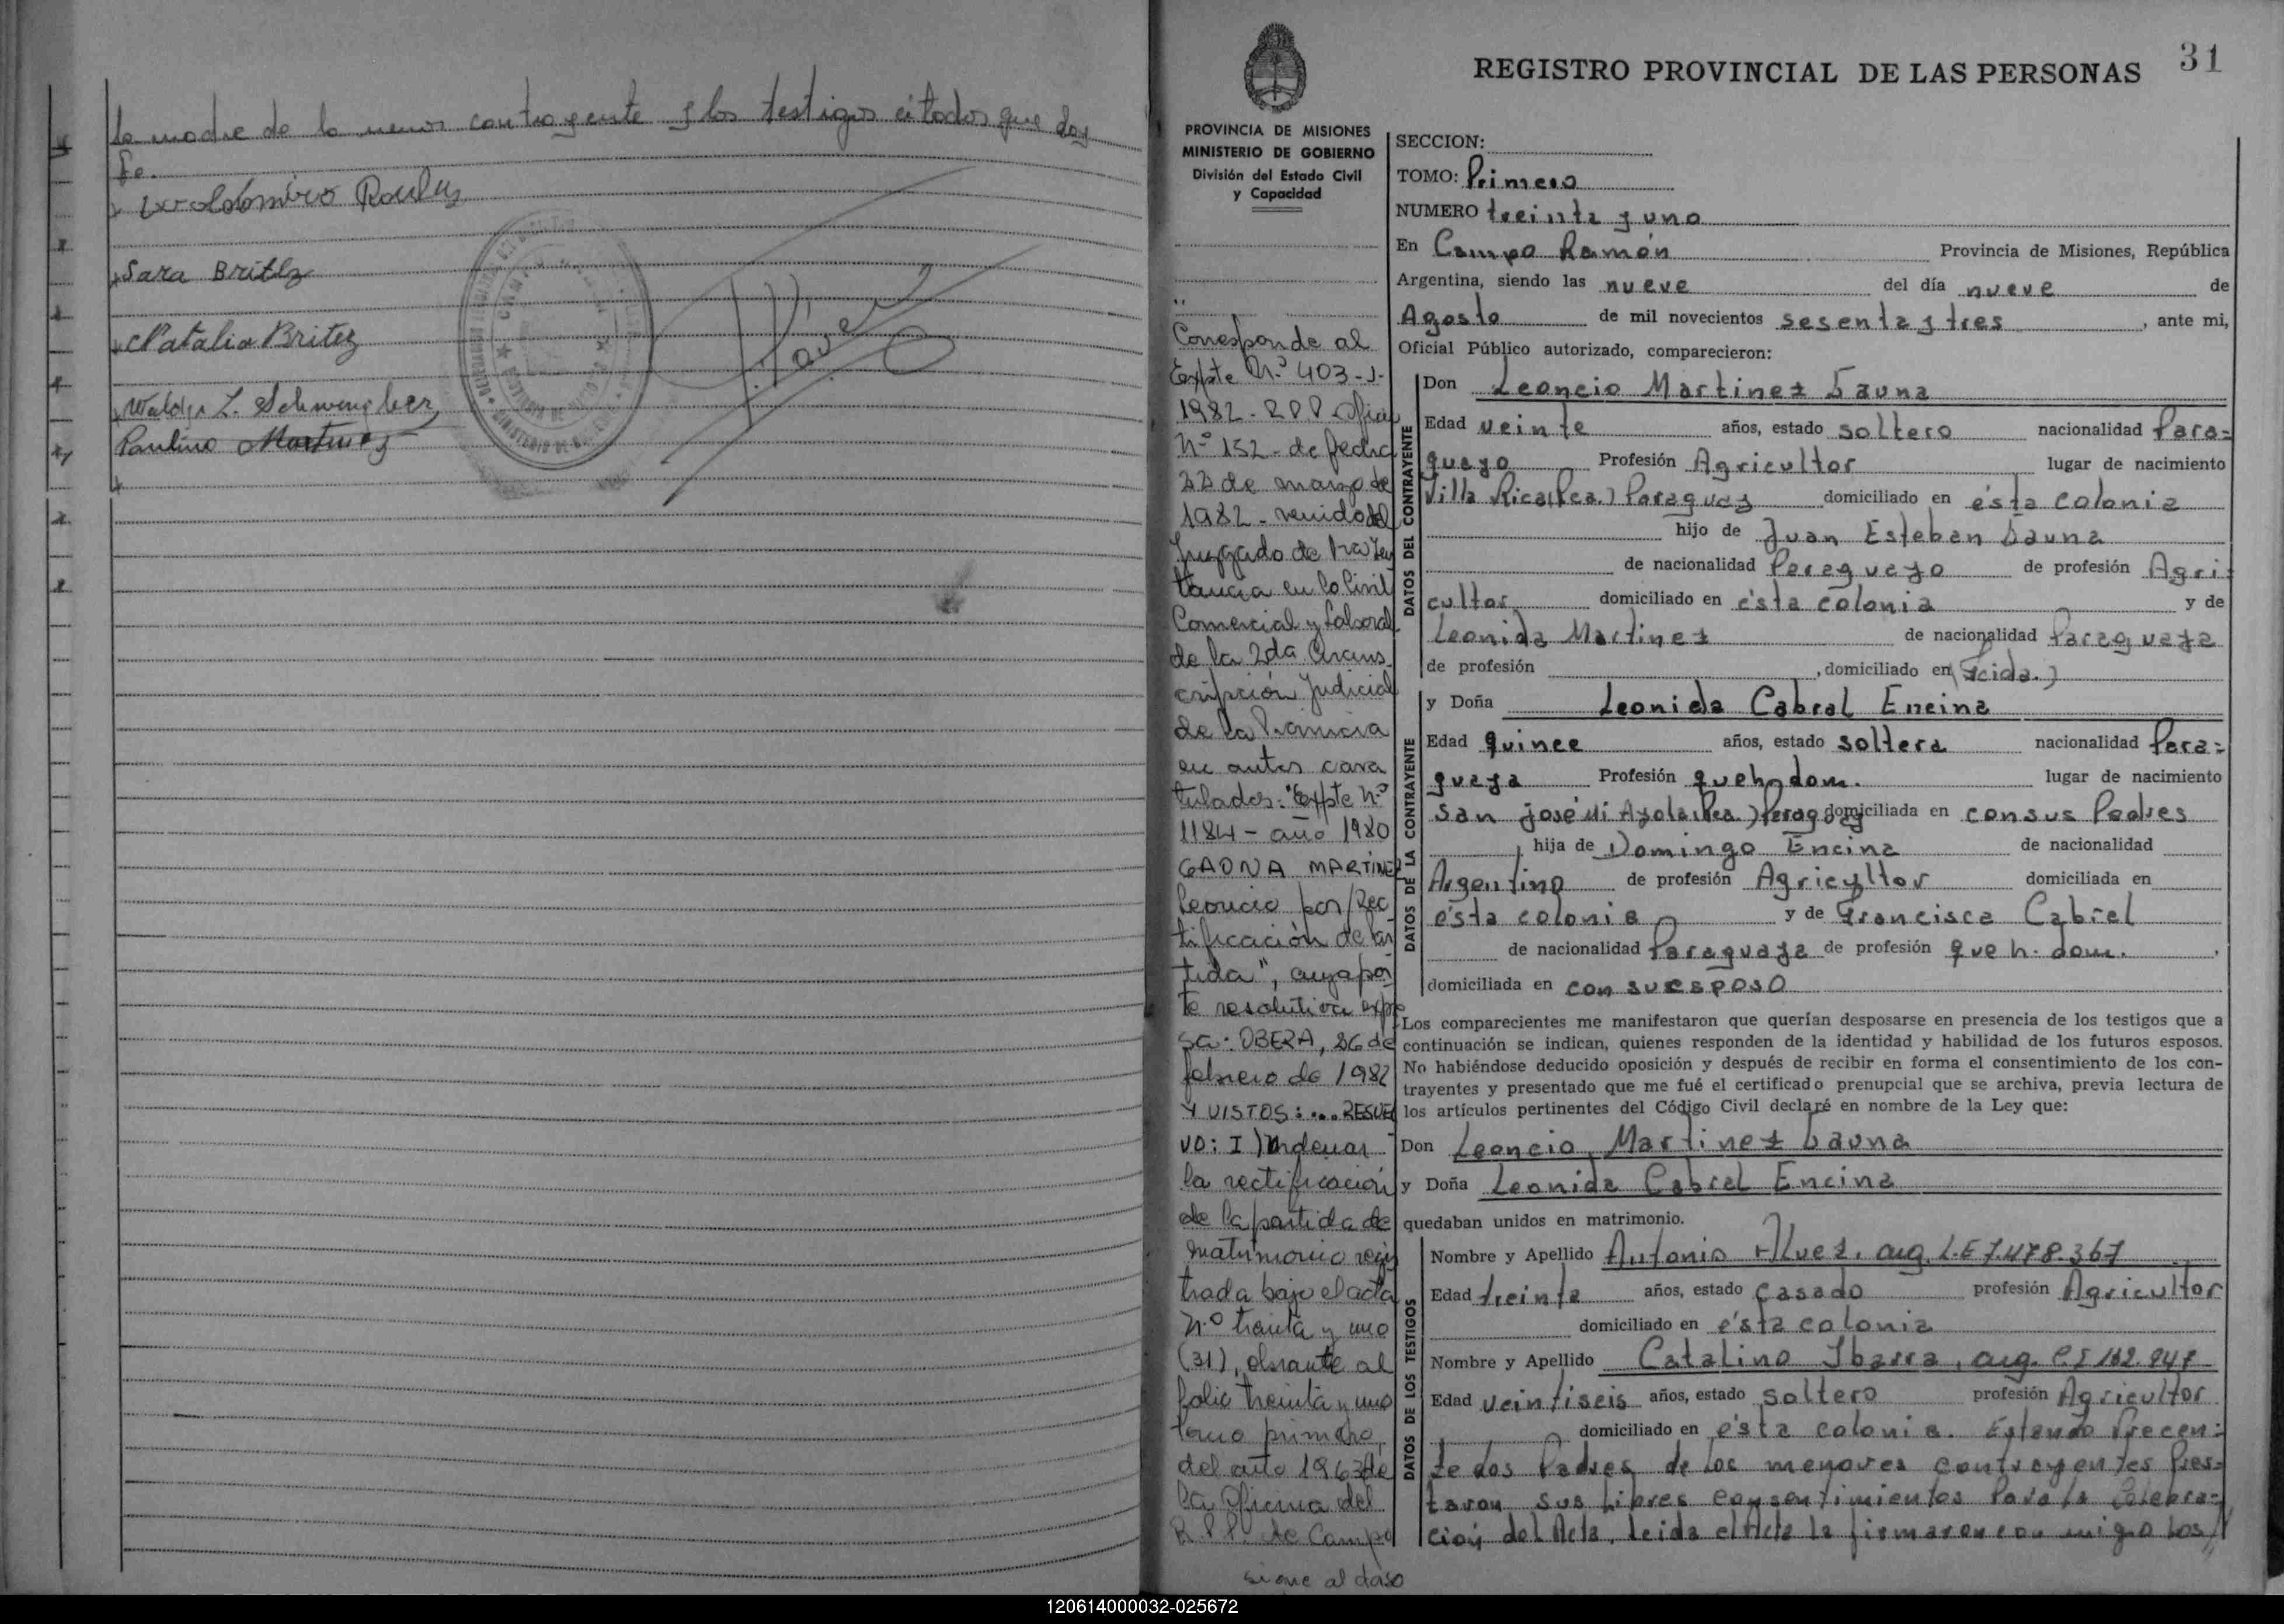 la madre de la menor contrayente y los testigos citados que doy
fe.
Paulus
Sara Britez
Natalia Britez
L. Schwengber
Paulino Martinez
31
REGISTRO PROVINCIAL DE LAS PERSONAS
PROVINCIA DE MISIONES
MINISTERIO DE GOBIERNO
División del Estado Civil
y Capacidad
Corresponde al
Expte N.º 403-J-
1982- R P P Oficio
Nº 152- de fecha
22 de marzo de
1982- venido del
Juzgado de
tancia en lo Civil
Comercial y Laboral
de la 2da Circuns
cripción Judicial
de la Provincia
en autos cara
tulados: "Expte Nº
1184- año 1980
GAONA MARTINEZ
Leoncio por/Rec
tificación de par
tida", cuya par
te resolutiva expre
sa: OBERA, 26 de
febrero de 1982
Y VISTOS:... RESUEL
VO: I) Ordenar
la rectificación
de la partida de
matrimonio regis
trada bajo el acta
N.º treinta y uno
(31), obrante al
folio treinta y uno
tomo primero,
del año 1963 de
la Oficina del
R.P.P. de Campo
sigue al dorso
SECCION:
TOMO: Primero
NUMERO treinta y uno
En Campo Ramón Provincia de Misiones, República
Argentina, siendo las nueve del día nueve de
Agosto de mil novecientos sesenta y tres, ante mi,
Oficial Público autorizado, comparecieron:
DATOS DEL CONTRAYENTE
Don Leoncio Martinez Gauna
Edad veinte años, estado soltero nacionalidad Para=
guayo Profesión Agricultor lugar de nacimiento
Villa Rica(Rca.) Paraguay domiciliado en ésta colonia
hijo de Juan Esteban Gauna
de nacionalidad Paraguayo de profesión Agri=
cultor domiciliado en ésta colonia y de
Leonida Martinez de nacionalidad Paraguaya
de profesión , domiciliado en (Fcida.)
DATOS DE LA CONTRAYENTE
y Doña Leonida Cabral Encina
Edad quince años, estado soltera nacionalidad Para=
guaya Profesión queh. dom. lugar de nacimiento
San José Mi Ayola (Rca.) Paraguay domiciliada en con sus Padres
hija de Domingo Encina de nacionalidad
Argentino de profesión Agricultor domiciliada en
ésta colonia y de Francisca Cabral
de nacionalidad Paraguaya de profesión queh. dom.,
domiciliada en con su esposo
Los comparecientes me manifestaron que querían desposarse en presencia de los testigos que a
continuación se indican, quienes responden de la identidad y habilidad de los futuros esposos.
No habiéndose deducido oposición y después de recibir en forma el consentimiento de los con-
trayentes y presentado que me fué el certificado prenupcial que se archiva, previa lectura de
los artículos pertinentes del Código Civil declaré en nombre de la Ley que:
Don Leoncio Martinez Gauna
y Doña Leonida Cabral Encina
quedaban unidos en matrimonio.
DATOS DE LOS TESTIGOS
Nombre y Apellido Antonio Alvez, arg. L.E 7.478.367
Edad treinta años, estado casado profesión Agricultor
domiciliado en ésta colonia
Nombre y Apellido Catalino Ibarra, arg. C.I 162.947
Edad veintiseis años, estado soltero profesión Agricultor
domiciliado en ésta colonia. Estando Precen=
te los Padres de los menores contrayentes Pres=
taron sus Libres consentimientos Para la Celebra=
ción del Acta, leida el Acta la firmaron conmigo Los//
120614000032-025672